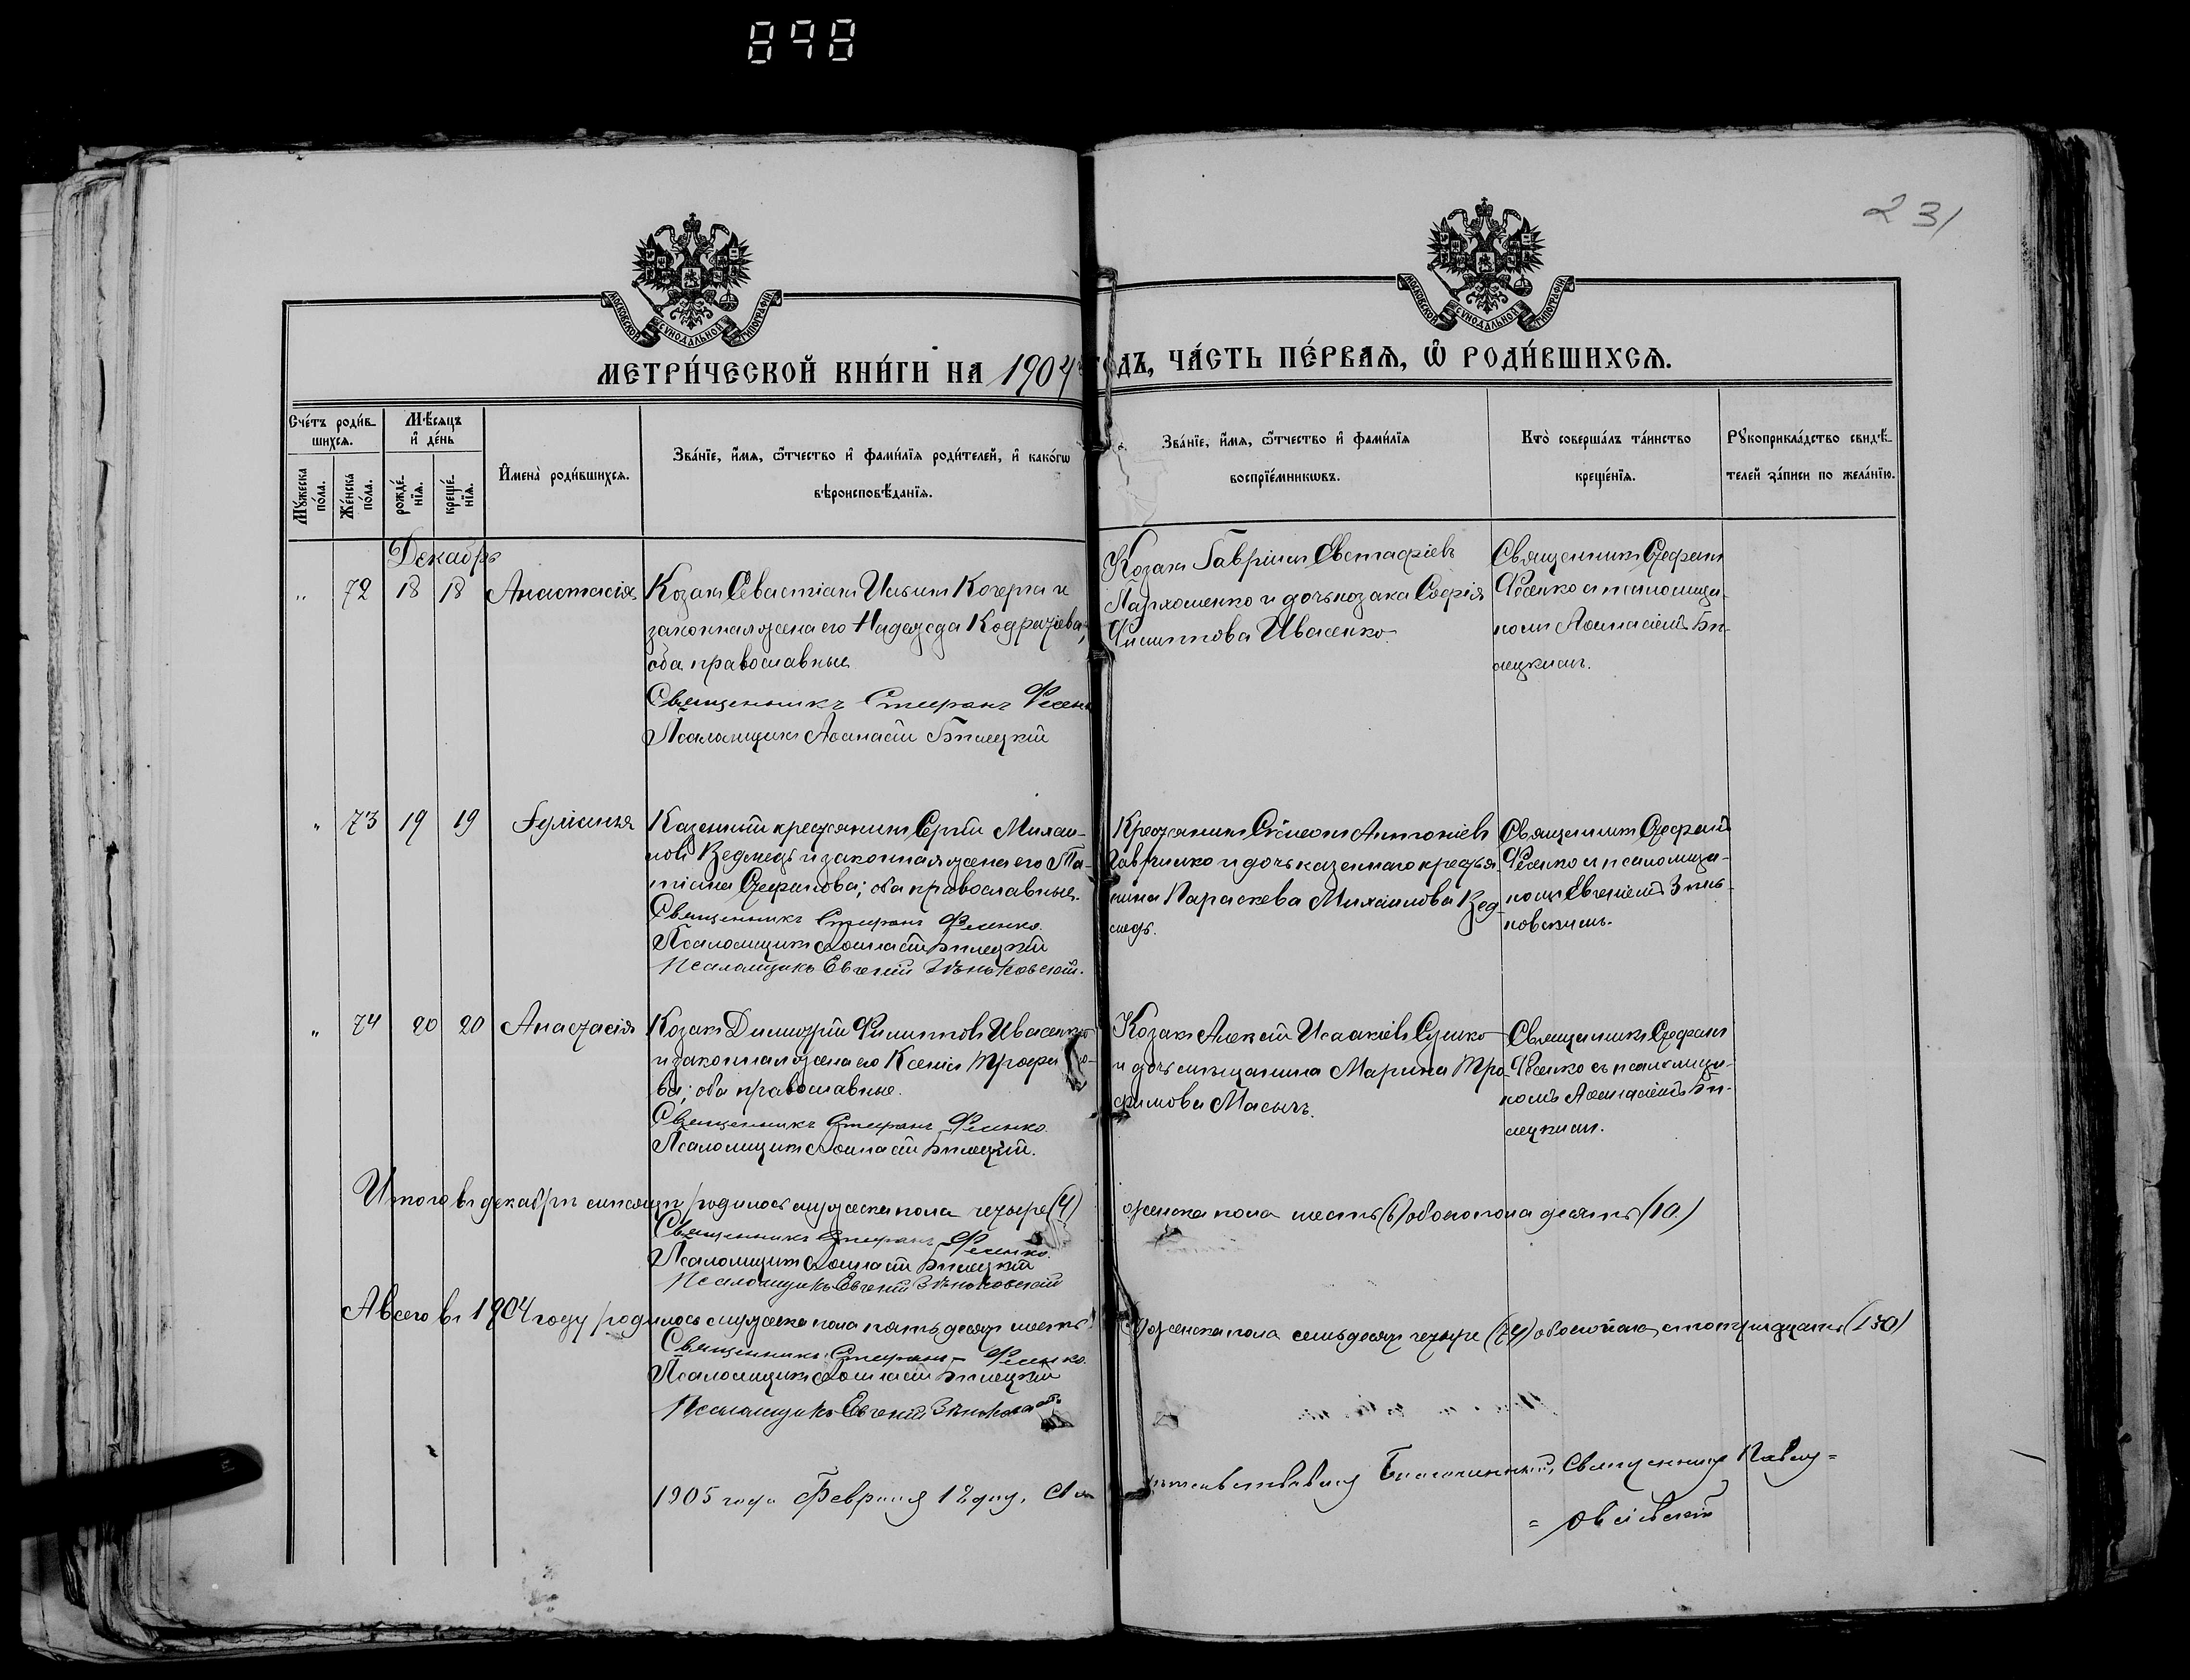 898
231
МОСКОВСКОЙ СѴНОДАЛЬНОЙ ТИПОГРАФІИ
МОСКОВСКОЙ СѴНОДАЛЬНОЙ ТИПОГРАФІИ
МЕТРИ́ЧЕСКОЙ КНИ́ГИ НА 1904 ГОДЪ, ЧА́СТЬ ПЕ́РВАѦ, Ѡ҆ РОДИ́ВШИХСѦ.
Сче́тъ роди́в-
шихсѧ.
Мѣ́сѧцъ
и҆ де́нь
Мꙋ́жеска
по́ла.
Же́нска
по́ла.
рожде́-
нїѧ.
креще́-
нїѧ.
И҆мена̀ роди́вшихсѧ.
Зва́нїе, и҆́мѧ, ѻ҆́тчество и҆ фами́лїѧ роди́телей, и҆ како́гѡ
вѣроисповѣ́данїѧ.
Зва́нїе, и҆́мѧ, ѻ҆́тчество и҆ фами́лїѧ
воспрїе́мникѡвъ.
Кто̀ соверша́лъ та́инство
креще́нїѧ.
Рꙋкоприкла́дство свидѣ́-
телей за́писи по жела́нїю.
Декабрь
" 72 18 18 Анастасія
Козакъ Севастіанъ Ильинъ Кочерга и
законная жена его Надежда Кодратіева,
оба православные
Священникъ Стефанъ Фесен
Псаломщикъ Аѳанасій Билецкій
Козакъ Гавріилъ Евстафіевъ
Пархоменко и дочь козака Софія
Филиппова Ивасенко
Священникъ Стефанъ
Фесенко съ псаломщи-
комъ Аѳанасіемъ Би-
лецкимъ.
" 73 19 19 Іуліанія
Казенный крестьянинъ Сергій Михаи-
ловъ Ведмедь и законная жена его Та-
тіана Стефанова; оба православные.
Священникъ Стефанъ Фесенко.
Псаломщикъ Аѳанасій Билецкій
Псаломщикъ Евгеній Зѣньковскій.
Крестьянинъ Сѵмеонъ Антоніевъ
Гавриленко и дочь казеннаго крестья-
нина Параскева Михаилова Вед-
медь.
Священникъ Стефанъ
Фесенко съ псаломщи-
комъ Евгеніемъ Зинь-
ковскимъ.
" 74 20 20 Анастасія
Козакъ Димитрій Филипповъ Ивасенко
и законная жена его Ксенія Трофимо-
ва; оба православные.
Священникъ Стефанъ Фесенко.
Псаломщикъ Аѳанасій Билецкій.
Козакъ Алексій Исаакіевъ Сушко
и дочь мѣщанина Марина Тро-
фимова Масычъ.
Священникъ Стефанъ
Фесенко съ псаломщи-
комъ Аѳанасіемъ Би-
лецкимъ.
Итого въ декабрѣ мѣсяцѣ родилось мужеска пола четыре (4) женска пола шесть (6) обоего пола десять (10)
Священникъ Стефанъ Фесенко.
Псаломщикъ Аѳанасій Билецкій
Псаломщикъ Евгеній Зѣньковскій
А всего въ 1904 году родилось мужеска пола пятьдесят шесть женска пола семьдесят четыре (74) обоего пола сто тридцать (130)
Священникъ Стефанъ Фесенко.
Псаломщикъ Аѳанасій Билецкій
Псаломщикъ Евгеній Зѣньковскій
1905 года Февраля 12 дня. Свидѣтельствовалъ Благочинный, Священникъ Павелъ